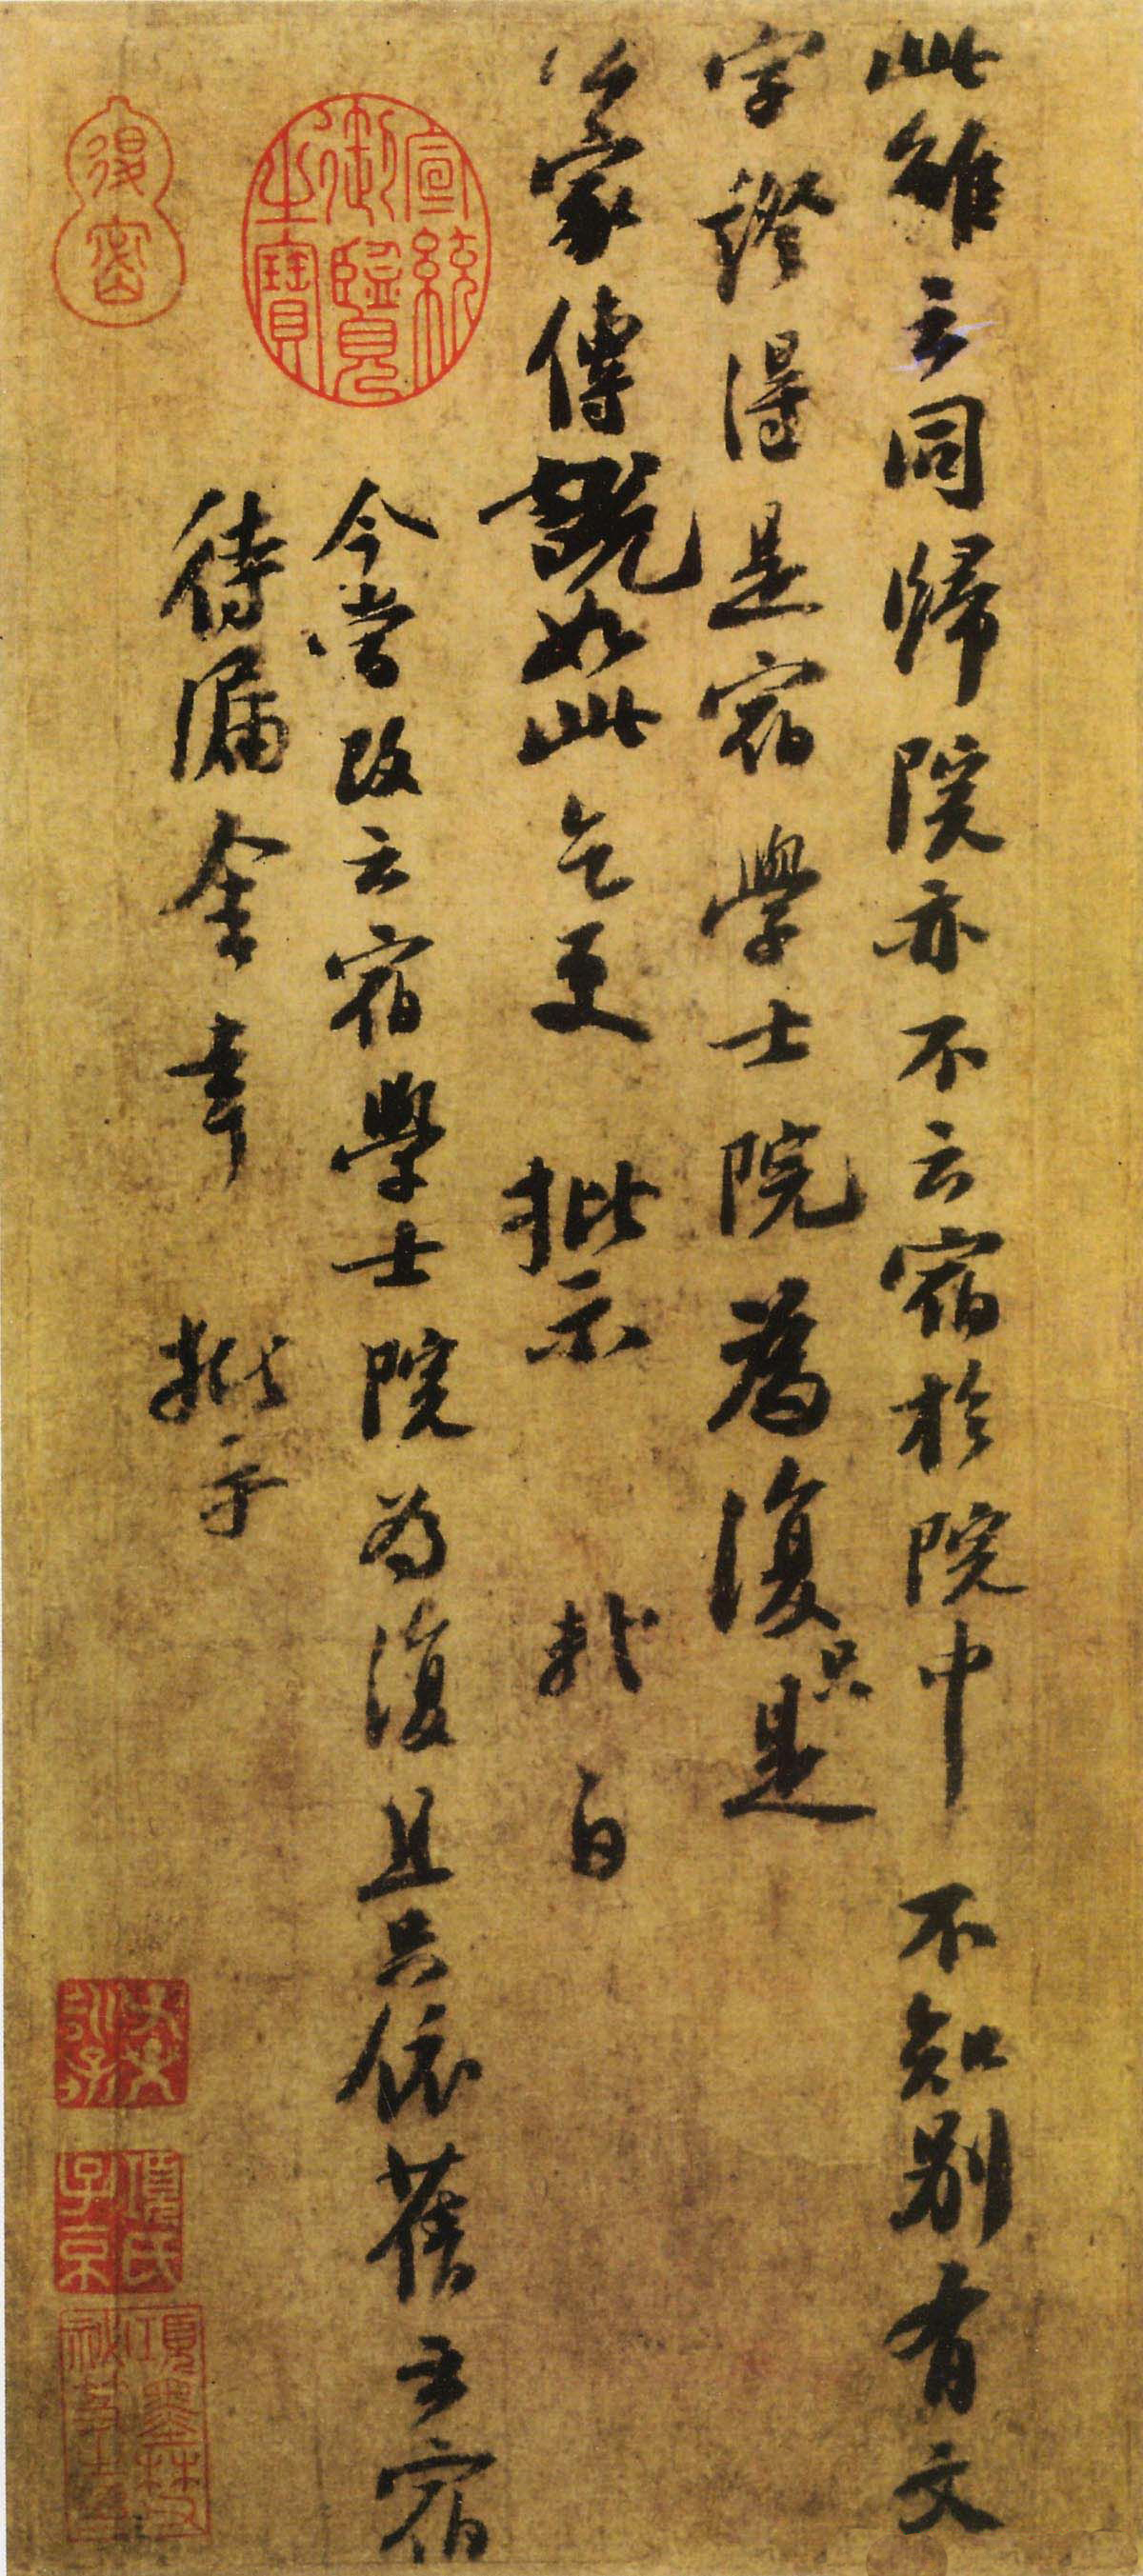 此雖云同歸院亦不云宿於院中 不知別有文
字證得是宿學士院為復只是
公家傳說如此乞更 批示 軾白
今當改云宿學士院為復且只依舊云宿
待漏舍幸 批示
宣統御覽之寶
退密
項氏子京
項墨林父秘笈之印